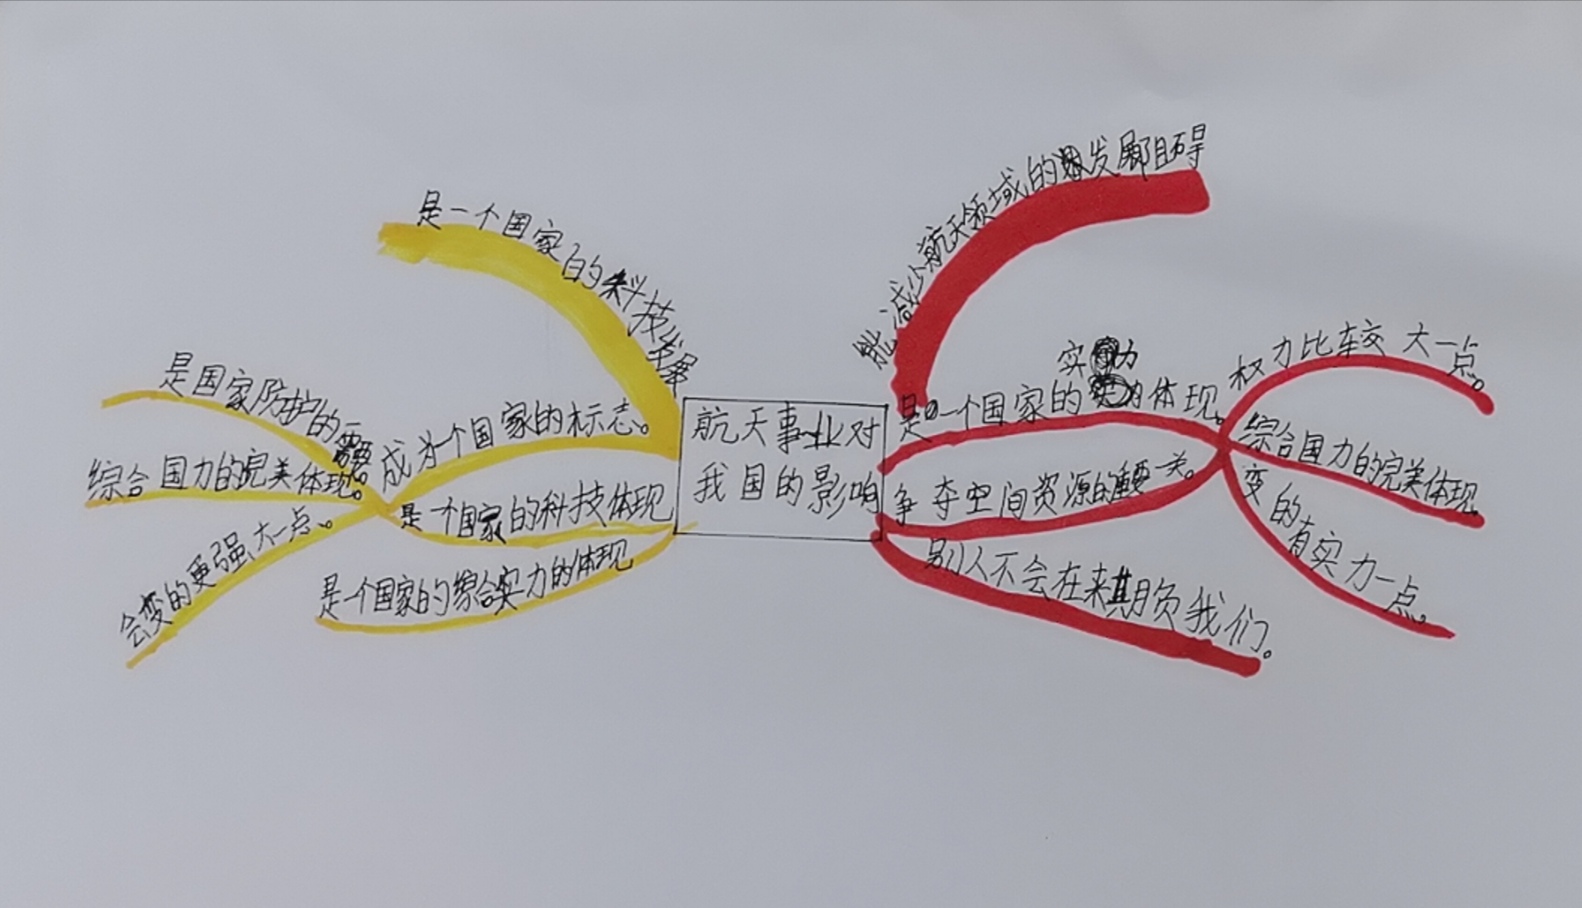 航天事业对
我国的影响
是一个国家的科技发展
成为一个国家的标志。
是一个国家的科技体现
是一个国家的综合实力的体现
是国家防护的需要。
综合国力的完美体现。
会变的更强大一点。
能减少航天领域的发展阻碍
是一个国家的实力体现。
争夺空间资源的重要一关。
别人不会在来期负我们。
权力比较大一点。
综合国力的完美体现。
变的有实力一点。